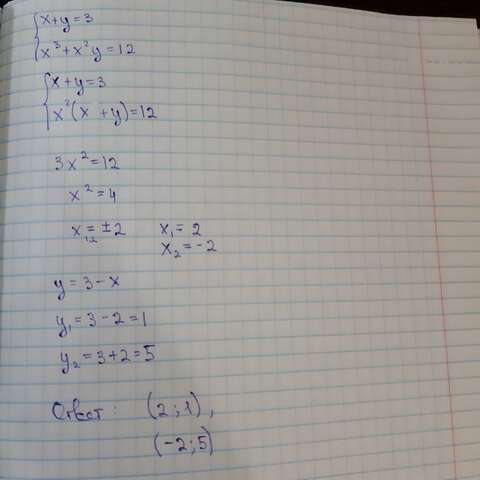 x+y=3
x³+x²y=12
x+y=3
x²(x+y)=12
3x²=12
x²=4
x₁,₂=±2 x₁=2
x₂=-2
y=3-x
y₁=3-2=1
y₂=3+2=5
Ответ: (2;1),
(-2;5)